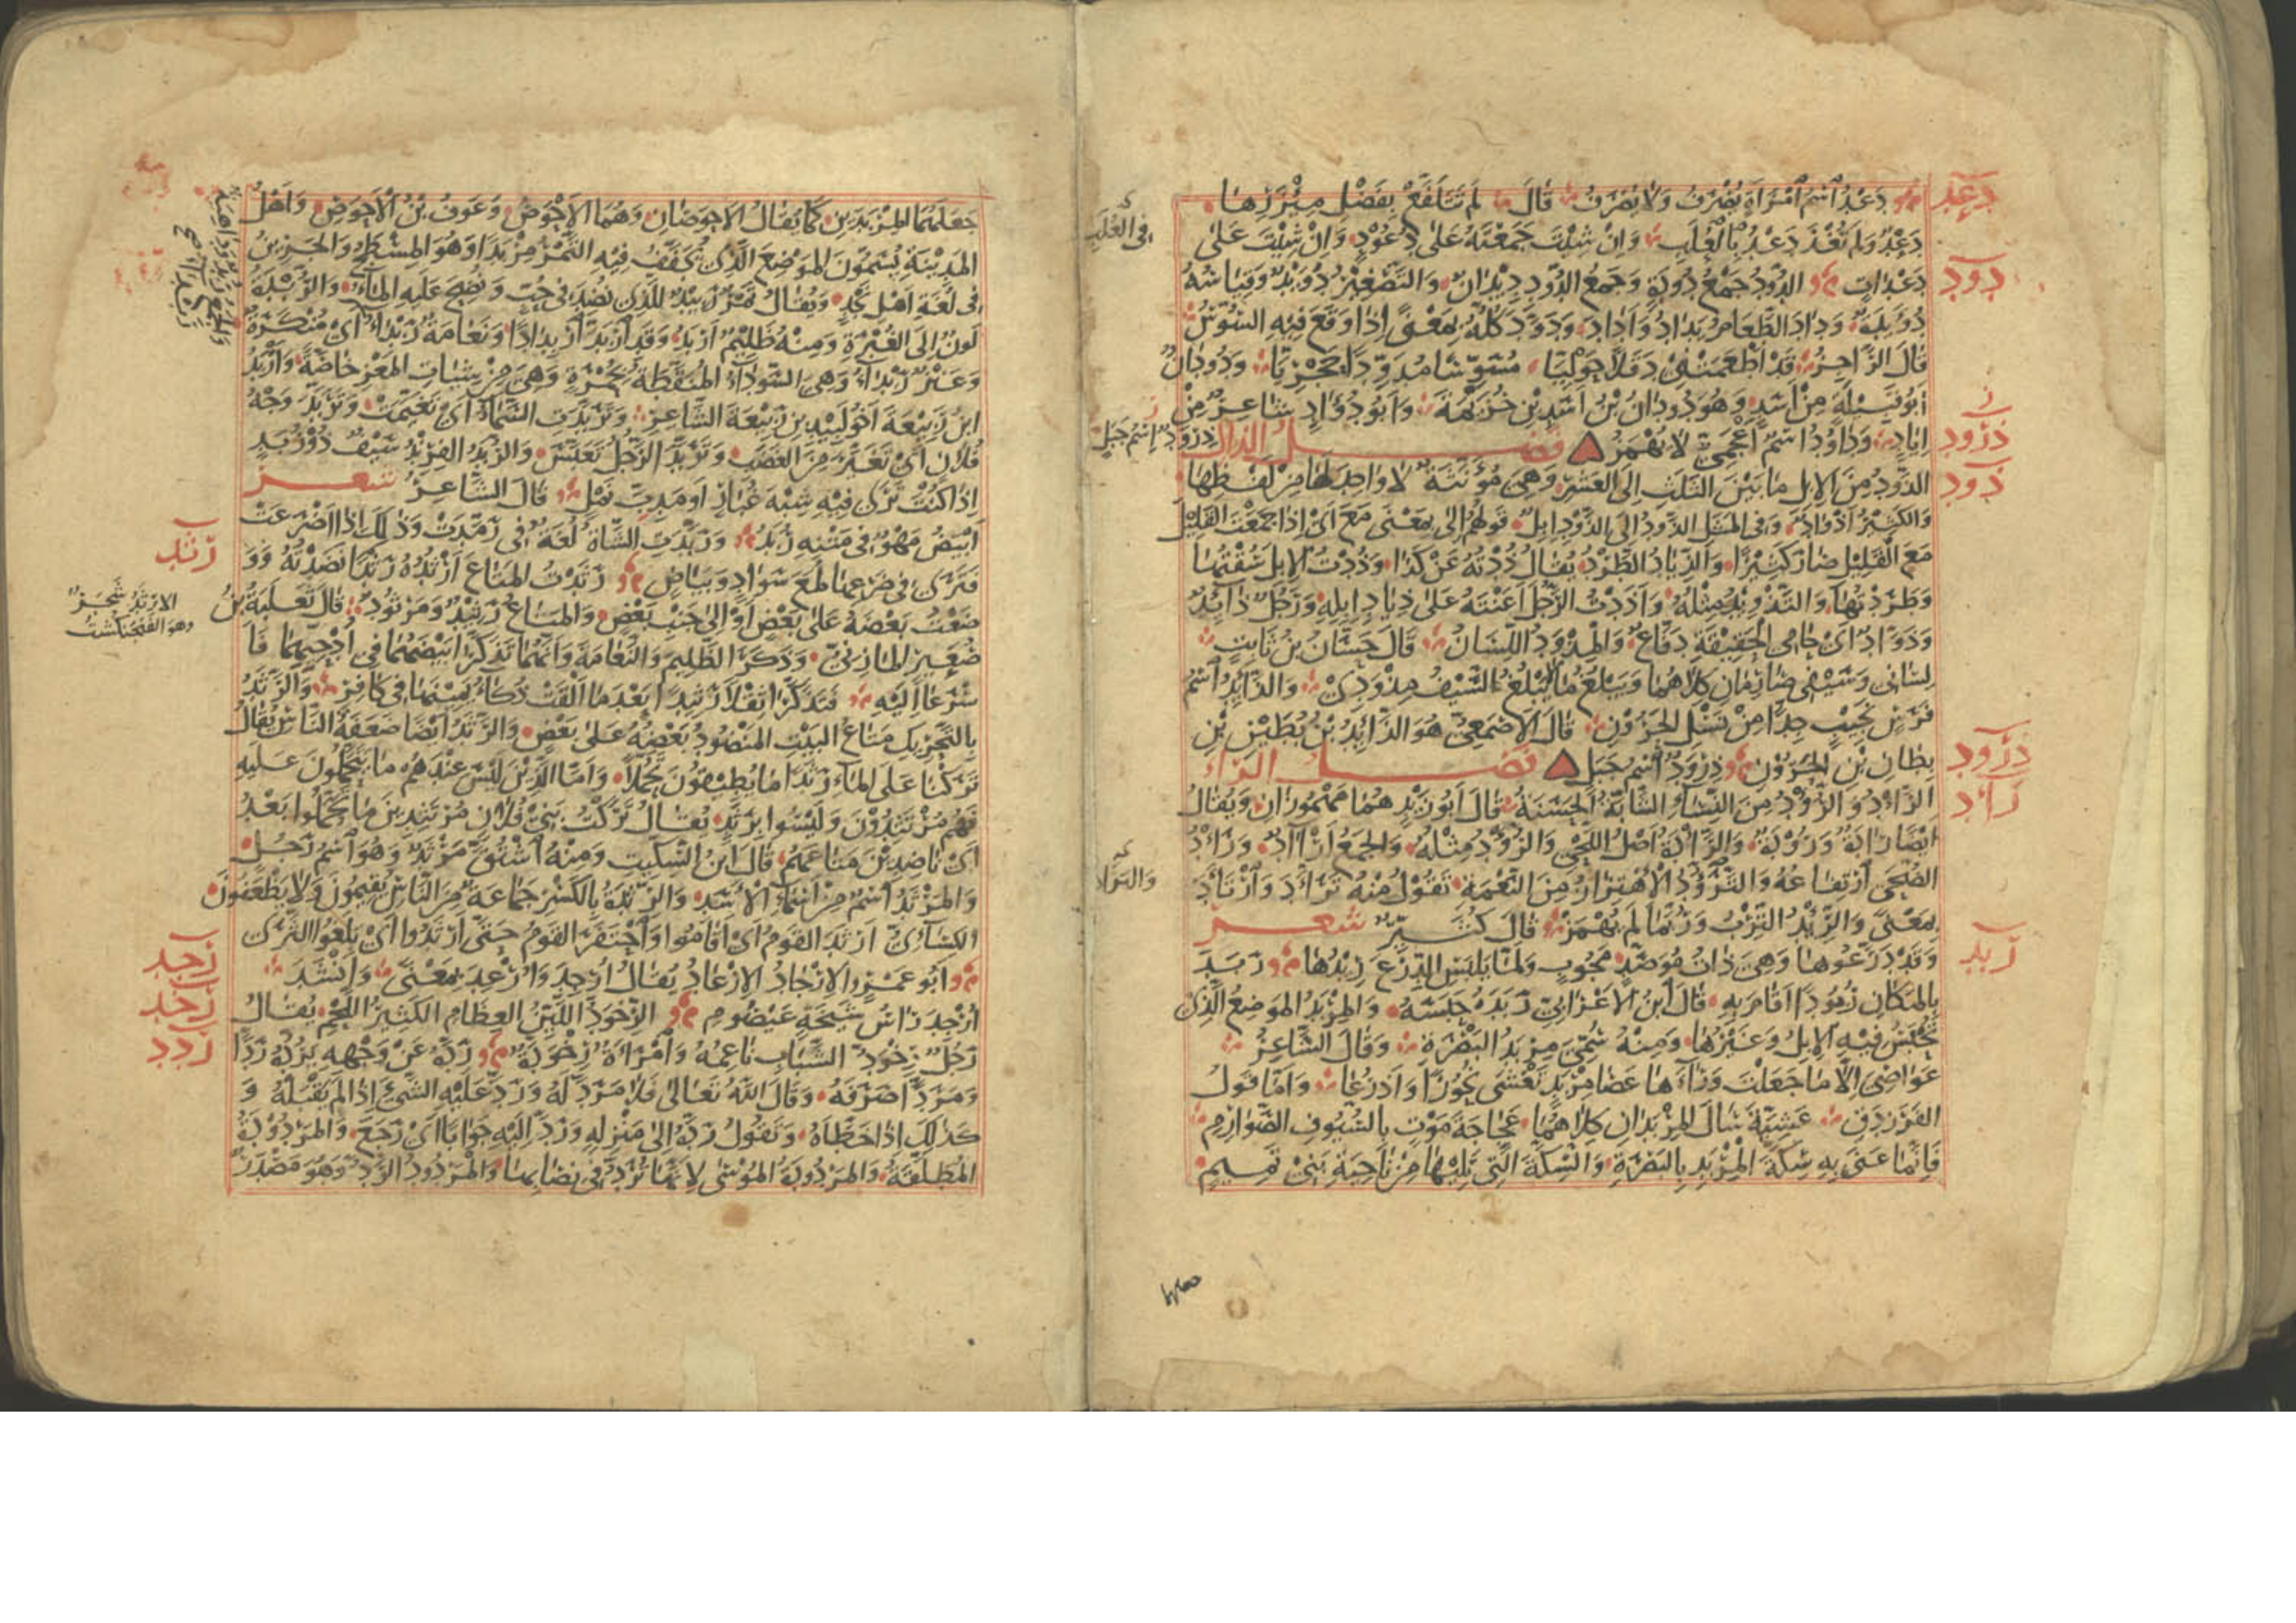 دعد
دَعْدُ اسْمُ امْرَأَةٍ يُصْرَفُ وَلَا يُصْرَفُ قَالَ لَمْ تَتَلَفَّعْ بِفَضْلِ مِئْزَرِهَا
دَعْدٌ وَلَمْ تُغْذَ دَعْدُ بِالْعُلَبِ وَإِنْ شِئْتَ جَمَعْتَهُ عَلَى دُعُودٍ وَإِنْ شِئْتَ عَلَى
في العلب
دود
دَعْدَاتٍ الدُّودُ جَمْعُ دُودَةٍ وَجَمْعُ الدُّودِ دِيْدَانٌ وَالتَّصْغِيْرُ دُوَيْدٌ وَقِيَاسُهُ
دُوَيْدَةٌ وَدَادَ الطَّعَامُ يَدَادُ وَأَدَادَ وَدَوَّدَ كُلُّهُ بِمَعْنًى إِذَا وَقَعَ فِيْهِ السُّوْسُ
قَالَ الرَّاجِزُ قَدْ أَطْعَمَتْنِي دَقَلًا حَوْلِيًّا مُسَوِّسًا مُدَوِّدًا حَجْرِيًّا وَدُودَانُ
أَبُو قَبِيْلَةٍ مِنْ أَسَدٍ وَهُوَ دُودَانُ بْنُ أَسَدِ بْنِ خُزَيْمَةَ وَأَبُو دُؤَادٍ شَاعِرٌ مِنْ
ذرود
إِيَادٍ وَدَاوُدُ اسْمٌ أَعْجَمِيٌّ لَا يُهْمَزُ فصل الذال
ذرود اسم جبل
ذود
الذَّوْدُ مِنَ الإِبِلِ مَا بَيْنَ الثَّلَثِ إِلَى العَشْرِ وَهِيَ مُؤَنَّثَةٌ لَا وَاحِدَ لَهَا مِنْ لَفْظِهَا
وَالكَثِيْرُ أَذْوَادٌ وَفِي المَثَلِ الذَّوْدُ إِلَى الذَّوْدِ إِبِلٌ قَوْلُهُمْ إِلَى بِمَعْنَى مَعَ أَيْ إِذَا جَمَعْتَ القَلِيْلَ
مَعَ القَلِيْلِ صَارَ كَثِيْرًا وَالذِّيَادُ الطَّرْدُ يُقَالُ ذُدْتُهُ عَنْ كَذَا وَذُدْتُ الإِبِلَ سُقْتُهَا
وَطَرَدْتُهَا وَالتَّذْوِيْدُ مِثْلُهُ وَأَذَدْتُ الرَّجُلَ أَعَنْتُهُ عَلَى ذِيَادِ إِبِلِهِ وَرَجُلٌ ذَائِدٌ
وَذَوَّادٌ أَيْ حَامِي الحَقِيْقَةِ دَفَّاعٌ وَالمِذْوَدُ اللِّسَانُ قَالَ حَسَّانُ بْنُ ثَابِتٍ
لِسَانِي وَسَيْفِي صَارِمَانِ كِلَاهُمَا وَيَبْلُغُ مَا لَا يَبْلُغُ السَّيْفُ مِذْوَدِي وَالذَّائِدُ اسْمُ
فَرَسٍ نَجِيْبٍ جِدًّا مِنْ نَسْلِ الحَرُوْنِ قَالَ الأَصْمَعِيُّ هُوَ الذَّائِدُ بْنُ بُطَيْنِ بْنِ
ذرود
بِطَانِ بْنِ الحَرُوْنِ ذِرْوَدٌ اسْمُ جَبَلٍ فصل الراء
رأد
الرَّأْدُ وَالرُّؤْدُ مِنَ النِّسَاءِ الشَّابَّةُ الحَسَنَةُ قَالَ أَبُو زَيْدٍ هُمَا مَهْمُوزَانِ وَيُقَالُ
أَيْضًا رَأْدَةٌ وَرُؤْدَةٌ وَالرَّأْدُ أَصْلُ اللَّحْيِ وَالرُّؤْدُ مِثْلُهُ وَالجَمْعُ أَرْآدٌ وَرَأْدُ
الضُّحَى ارْتِفَاعُهُ وَالتَّرَؤُّدُ الاهْتِزَازُ مِنَ النَّعْمَةِ تَقُوْلُ مِنْهُ تَرَأَّدَ وَارْتَأَدَ
بِمَعْنًى وَالرِّئْدُ التِّرْبُ وَرُبَّمَا لَمْ يُهْمَزْ قَالَ كُثَيِّرٌ شعر
ربد
وَقَدْ دَرَّعُوهَا وَهِيَ ذَاتُ مُؤَصَّدٍ مَجُوبٍ وَلَمَّا يَلْبَسِ الدِّرْعَ رِيْدُهَا رَبَدَ
بِالمَكَانِ رُبُودًا أَقَامَ بِهِ قَالَ ابْنُ الأَعْرَابِيِّ رَبَدَهُ حَبَسَهُ وَالمِرْبَدُ المَوْضِعُ الَّذِي
تُحْبَسُ فِيْهِ الإِبِلُ وَغَيْرُهَا وَمِنْهُ سُمِّيَ مِرْبَدُ البَصْرَةِ وَقَالَ الشَّاعِرُ
عَوَاصِيَ إِلَّا مَا جَعَلْتُ وَرَاءَهَا عَصَا مِرْبَدٍ تَغْشَى نُحُورًا وَأَذْرُعَا وَأَمَّا قَوْلُ
الفَرَزْدَقِ عَشِيَّةَ سَالَ المِرْبَدَانِ كِلَاهُمَا عَجَاجَةَ مَوْتٍ بِالسُّيُوفِ الصَّوَارِمِ
فَإِنَّمَا عَنَى بِهِ سِكَّةَ المِرْبَدِ بِالبَصْرَةِ وَالسِّكَّةَ الَّتِي تَلِيْهَا مِنْ نَاحِيَةِ بَنِي تَمِيمٍ
جَعَلَهُمَا المِرْبَدَيْنِ كَمَا يُقَالُ الأَحْوَصَانِ وَهُمَا الأَحْوَصُ وَعَوْفُ بْنُ الأَحْوَصِ وَأَهْلُ
المَدِيْنَةِ يُسَمُّونَ المَوْضِعَ الَّذِي يُجَفَّفُ فِيْهِ التَّمْرُ مِرْبَدًا وَهُوَ المِسْطَحُ وَالجَرِيْنُ
فِي لُغَةِ أَهْلِ نَجْدٍ وَيُقَالُ تَمْرٌ رَبِيْدٌ لِلَّذِي نُضِدَ فِي جُبٍّ وَنُضِحَ عَلَيْهِ المَاءُ وَالرُّبْدَةُ
لَوْنٌ إِلَى الغُبْرَةِ وَمِنْهُ ظَلِيْمٌ أَرْبَدُ وَقَدِ ارْبَدَّ ارْبِدَادًا وَنَعَامَةٌ رَبْدَاءُ أَيْ مُنْكَرَةٌ
وَعَنْزٌ رَبْدَاءُ وَهِيَ السَّوْدَاءُ المُنَقَّطَةُ بِحُمْرَةٍ وَهِيَ مِنْ شِيَاتِ المَعْزِ خَاصَّةً وَأَرْبَدُ
ابْنُ رَبِيْعَةَ أَخُو لَبِيْدِ بْنِ رَبِيْعَةَ الشَّاعِرِ وَتَرَبَّدَتِ السَّمَاءُ أَيْ تَغَيَّمَتْ وَتَرَبَّدَ وَجْهُ
فُلَانٍ أَيْ تَغَيَّرَ مِنَ الغَضَبِ وَتَرَبَّدَ الرَّجُلُ تَعَبَّسَ وَالرُّبَدُ الفِرِنْدُ سَيْفٌ ذُوْ رُبَدٍ
إِذَا كُنْتَ تَرَى فِيْهِ شِبْهَ غُبَارٍ أَوْ مَدَبِّ نَمْلٍ قَالَ الشَّاعِرُ شعر
أَبْيَضُ مَهْوٌ فِي مَتْنِهِ رُبَدُ وَرَبَّدَتِ الشَّاةُ لُغَةٌ فِي رَمَّدَتْ وَذَلِكَ إِذَا أَضْرَعَتْ
رثد
فَتَرَى فِي ضَرْعِهَا لُمَعَ سَوَادٍ وَبَيَاضٍ رَثَدْتُ المَتَاعَ أَرْثُدُهُ رَثْدًا نَضَدْتُهُ وَوَ
الارثد شجر
وهو الفنجنكشت
ضَعْتُ بَعْضَهُ عَلَى بَعْضٍ أَوْ إِلَى جَنْبِ بَعْضٍ وَالمَتَاعُ رَثِيْدٌ وَمَرْثُودٌ قَالَ ثَعْلَبَةُ بْنُ
صُعَيْرٍ المَازِنِيُّ وَذَكَرَ الظَّلِيْمَ وَالنَّعَامَةَ وَأَنَّهُمَا تَذَكَّرَا بَيْضَهُمَا فِي أُدْحِيِّهِمَا فَأَ
سْرَعَا إِلَيْهِ فَتَذَكَّرَا ثَقَلًا رَثِيْدًا بَعْدَ مَا أَلْقَتْ ذُكَاءُ يَمِيْنَهَا فِي كَافِرِ وَالرَّثَدُ
بِالتَّحْرِيْكِ مَتَاعُ البَيْتِ المَنْضُودُ بَعْضُهُ عَلَى بَعْضٍ وَالرَّثَدُ أَيْضًا ضَعَفَةُ النَّاسِ يُقَالُ
تَرَكْنَا عَلَى المَاءِ رَثَدًا مَا يُطِيْقُونَ تَحَمُّلًا وَأَمَّا الَّذِيْنَ لَيْسَ عِنْدَهُمْ مَا يَتَحَمَّلُونَ عَلَيْهِ
فَهُمْ مُرْتَثِدُوْنَ وَلَيْسُوا بِرَثَدٍ يُقَالُ تَرَكْتُ بَنِي فُلَانٍ مُرْتَثِدِيْنَ مَا تَحَمَّلُوا بَعْدُ
أَيْ نَاضِدِيْنَ مَتَاعَهُمْ قَالَ ابْنُ السِّكِّيْتِ وَمِنْهُ اشْتُقَّ مَرْثَدٌ وَهُوَ اسْمُ رَجُلٍ
وَالمَرْثَدُ اسْمٌ مِنْ أَسْمَاءِ الأَسَدِ وَالرِّثْدَةُ بِالكَسْرِ جَمَاعَةٌ مِنَ النَّاسِ يُقِيْمُونَ وَلَا يَظْعَنُونَ
الكِسَائِيُّ أَرْثَدَ القَوْمُ أَيْ أَقَامُوا وَاحْتَفَرَ القَوْمُ حَتَّى أَرْثَدُوا أَيْ بَلَغُوا الثَّرَى
رجد
أَبُو عَمْرٍو الإِرْجَادُ الإِرْعَادُ يُقَالُ أُرْجِدَ وَأُرْعِدَ بِمَعْنًى وَأَنْشَدَ
رخد
أُرْجِدَ رَأْسُ شَيْخَةٍ عَيْضُومِ الرِّخْوَدُّ اللَّيِّنُ العِظَامِ الكَثِيْرُ اللَّحْمِ يُقَالُ
ردد
رَجُلٌ رِخْوَدُّ الشَّبَابِ نَاعِمُهُ وَامْرَأَةٌ رِخْوَدَّةٌ رَدَّهُ عَنْ وَجْهِهِ يَرُدُّهُ رَدًّا
وَمَرَدًّا صَرَفَهُ وَقَالَ اللهُ تَعَالَى فَلَا مَرَدَّ لَهُ وَرَدَّ عَلَيْهِ الشَّيْءَ إِذَا لَمْ يَقْبَلْهُ وَ
كَذَلِكَ إِذَا خَطَّأَهُ وَتَقُوْلُ رَدَّهُ إِلَى مَنْزِلِهِ وَرَدَّ إِلَيْهِ جَوَابًا أَيْ رَجَعَ وَالمَرْدُودَةُ
المُطَلَّقَةُ وَالمَرْدُودَةُ المُوْسَى لِأَنَّهَا تُرَدُّ فِي نِصَابِهَا وَالمَرْدُودُ الرَّدُّ وَهُوَ مَصْدَرٌ